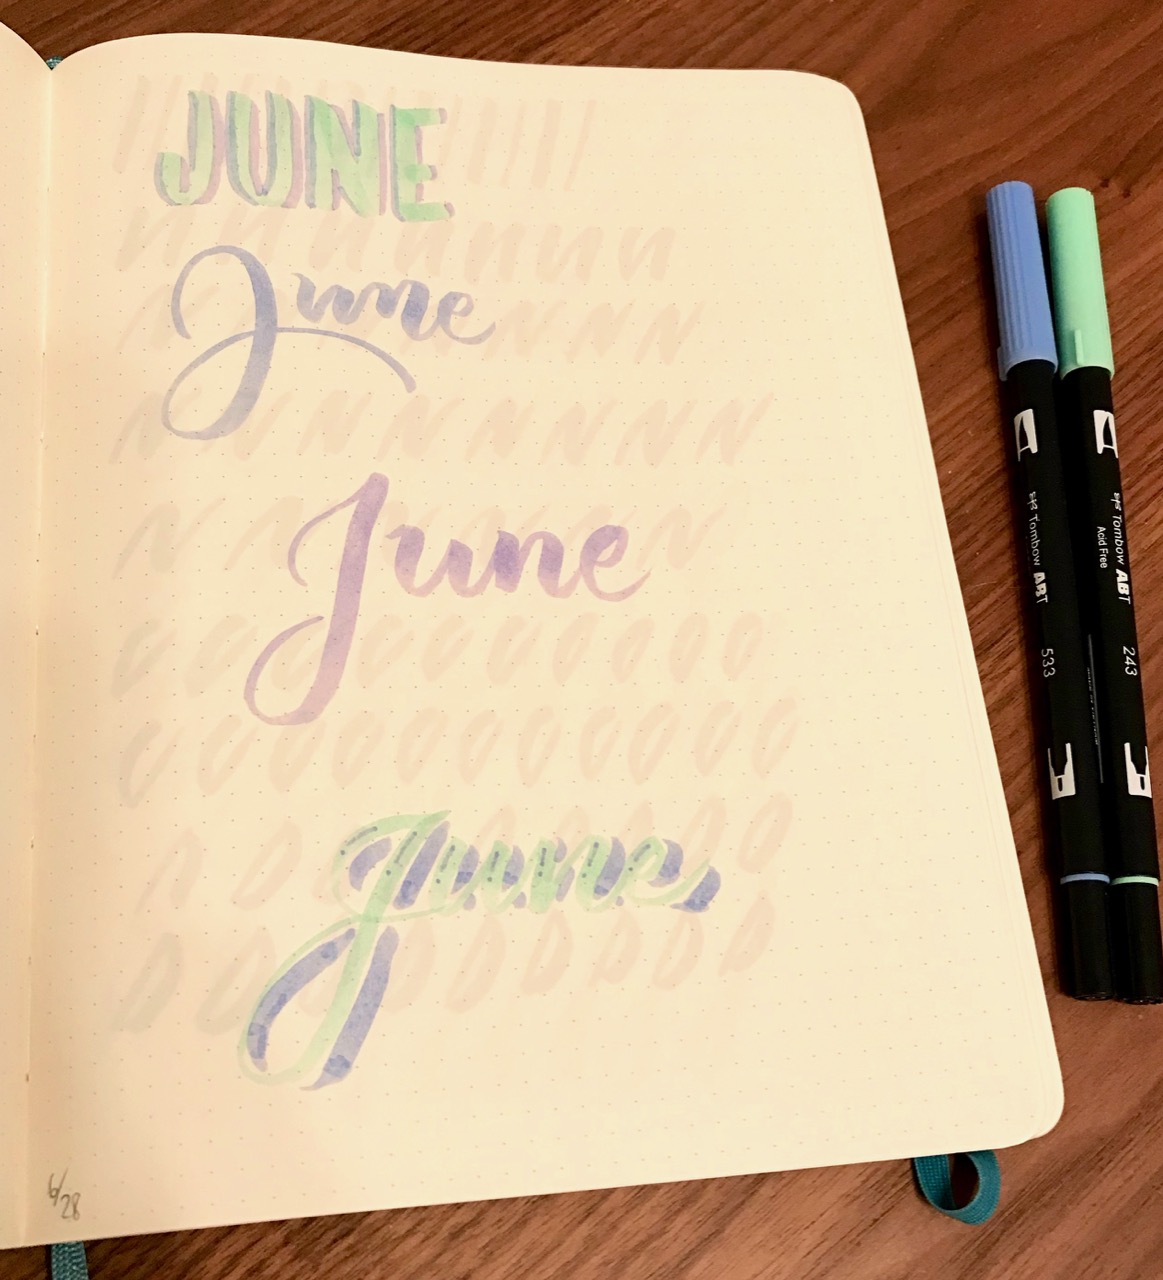 JUNE
June
June
June
6/28
Tombow ABT
533
Tombow ABT
Acid Free
243